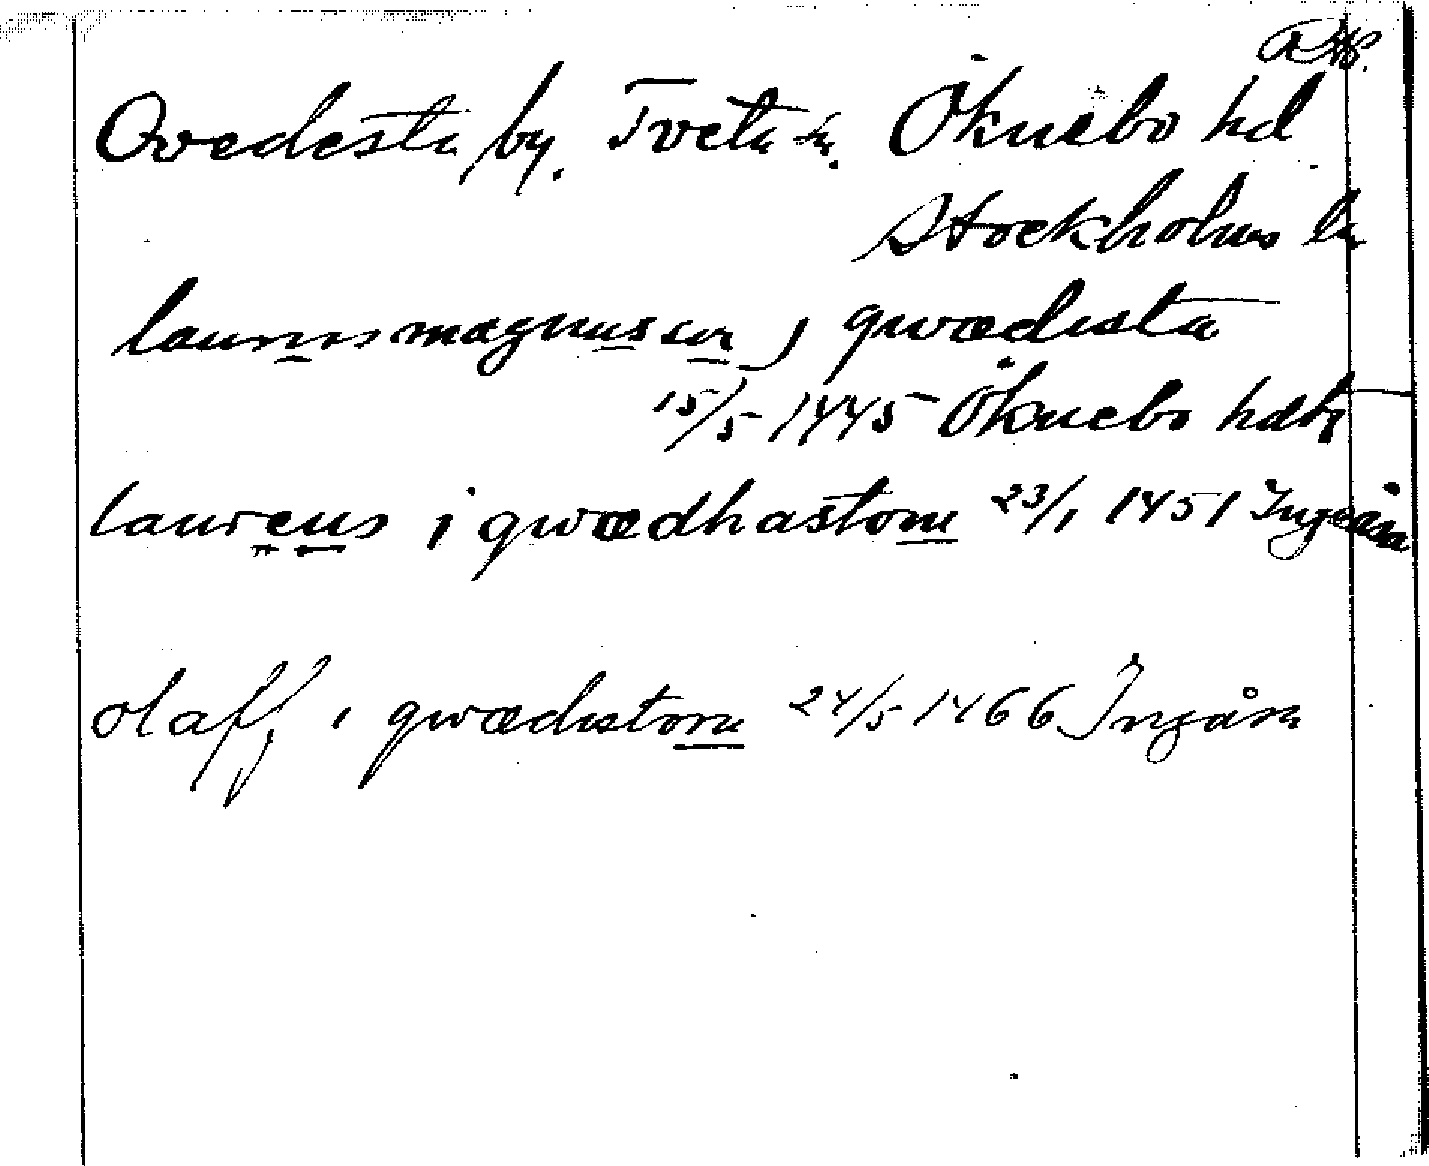 Qvedesta by. Tveta sn. Öknebo hd
Stockholms ln
laurins magnusson j qwædista
15/5 1445 Öknebo hdr
laurens i qwædhastom 23/1 1451 Ingeåsn
olaff i qwædistom 24/5 1466 Ingåsn